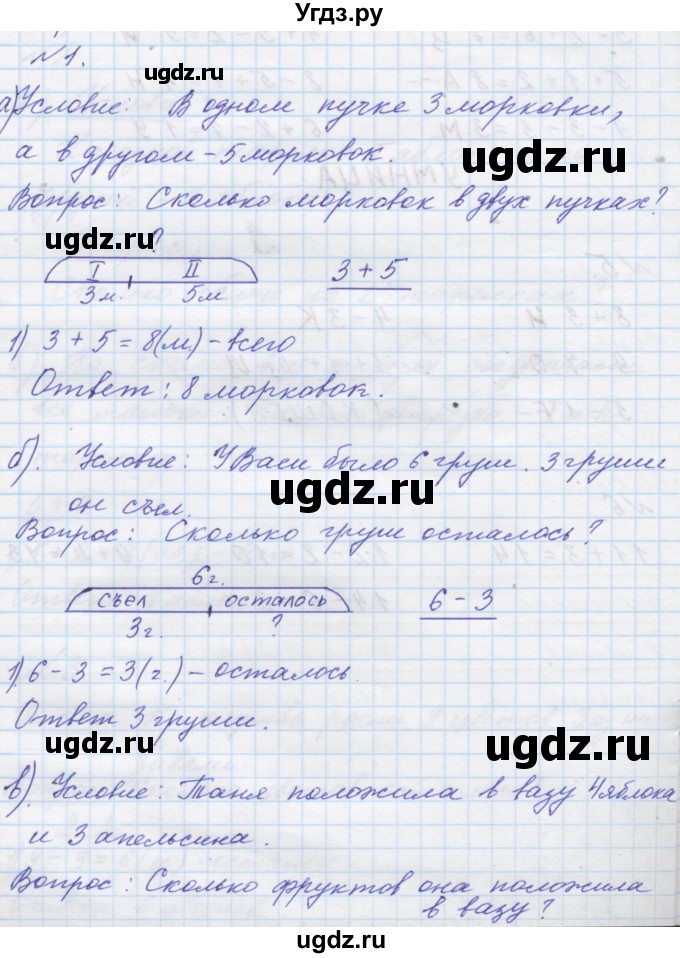 Угдз.ру
№1.
а) Условие: В одном пучке 3 морковки,
а в другом – 5 морковок.
ugdz.ru
Вопрос: Сколько морковок в двух пучках?
ugdz.ru
?
I II
3м. 5м.
3 + 5
ugdz.ru
1) 3 + 5 = 8(м.) – всего
Ответ: 8 морковок.
б). Условие: У Васи было 6 груш. 3 груши
он съел.
ugdz.ru
Вопрос: Сколько груш осталось?
6г.
съел осталось
3г. ?
6 – 3
1) 6 – 3 = 3(г.) – осталось.
Ответ 3 груши.
ugdz.ru
ugdz.ru
в). Условие: Таня положила в вазу 4 яблока
и 3 апельсина.
Вопрос: Сколько фруктов она положила
в вазу?
ugdz.ru